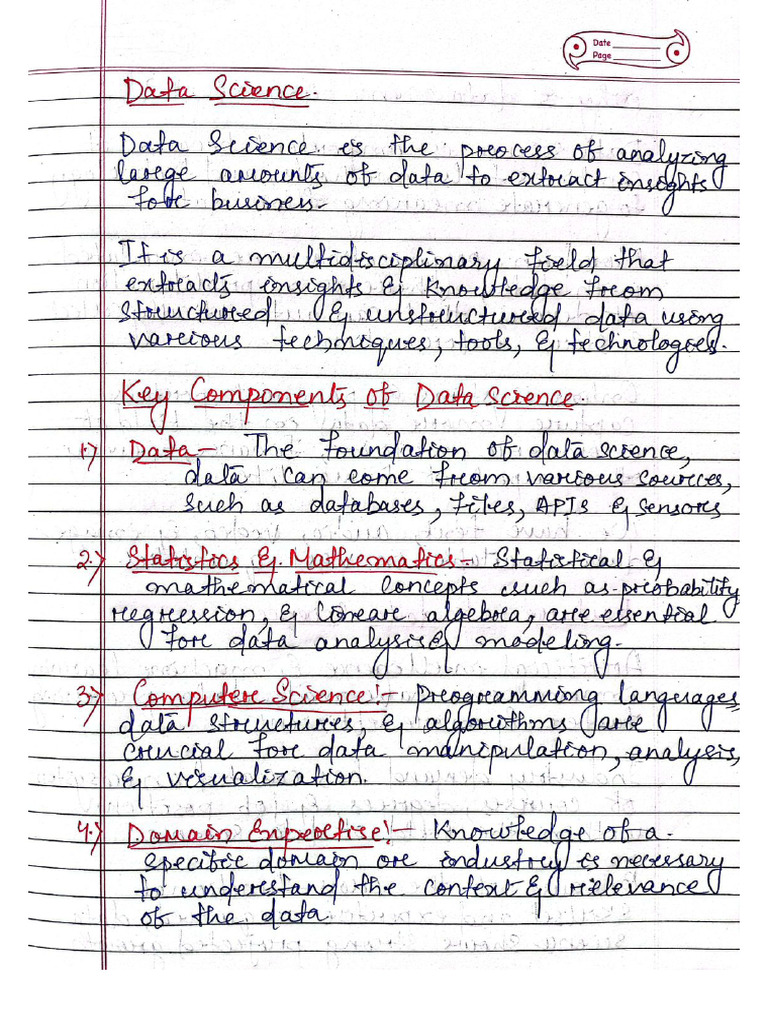 Date
Page
Data Science.
Data Science is the process of analyzing
large amounts of data to extract insights
for business.
It is a multidisciplinary field that
extracts insights & knowledge from
structured & unstructured data using
various techniques, tools, & technologies.
Key Components of Data Science.
1.) Data - The foundation of data science,
data can come from various sources,
such as databases, files, APIs & sensors
2.) Statistics & Mathematics - Statistical &
mathematical concepts such as probability
regression, & linear algebra, are essential
for data analysis & modeling.
3.) Computer Science:- Programming languages,
data structures, & algorithms are
crucial for data manipulation, analysis,
& visualization.
4.) Domain Expertise:- Knowledge of a
specific domain or industry is necessary
to understand the context & relevance
of the data